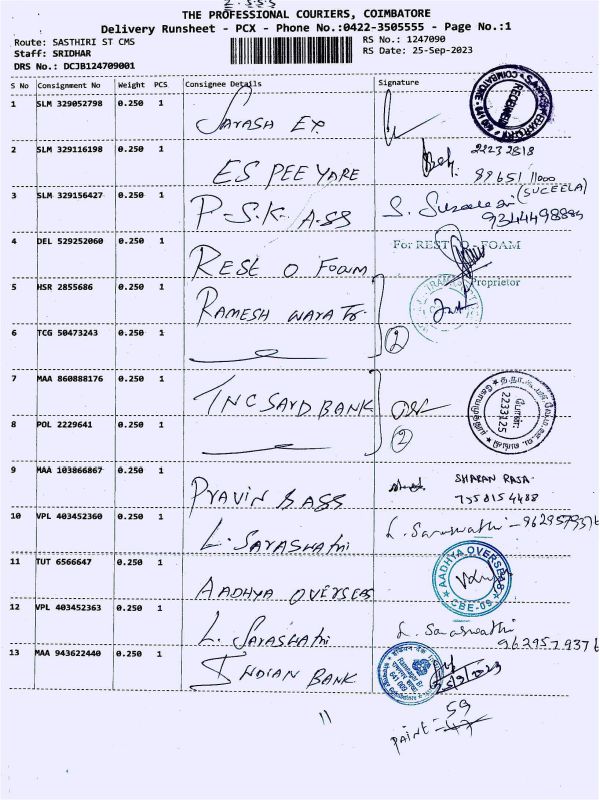 THE PROFESSIONAL COURIERS, COIMBATORE
Delivery Runsheet - PCX - Phone No.:0422-3505555 - Page No.:1
Route: SASTHIRI ST CMS
RS No.: 1247090
Staff: SRIDHAR
RS Date: 25-Sep-2023
DRS No.: DCJB124709001
S No Consignment No Weight PCS Consignee Details Signature
1 SLM 329052798 0.250 1
RECEIVED
2 SLM 329116198 0.250 1 ES PEE YARE 2223 2818
99651 11000
3 SLM 329156427 0.250 1 P-S.K. ASS (SUCEELA)
4 DEL 529252060 0.250 1 REST O FOAM For REST - O - FOAM
Proprietor
5 HSR 2855686 0.250 1 RAMESH
6 TCG 50473243 0.250 1 2
7 MAA 860888176 0.250 1 BANK
2233125
8 POL 2229641 0.250 1 2
9 MAA 103866867 0.250 1 PRAVIN SHARAN RAJA
7358154488
10 VPL 403452360 0.250 1 L. SARASWATHI L. Saraswathi - 9629579376
11 TUT 6566647 0.250 1 AADHYA OVERSEAS AADHYA OVERSEAS
CBE-09
12 VPL 403452363 0.250 1 L. SARASWATHI L. Saraswathi
9629579376
13 MAA 943622440 0.250 1 INDIAN BANK
11
59